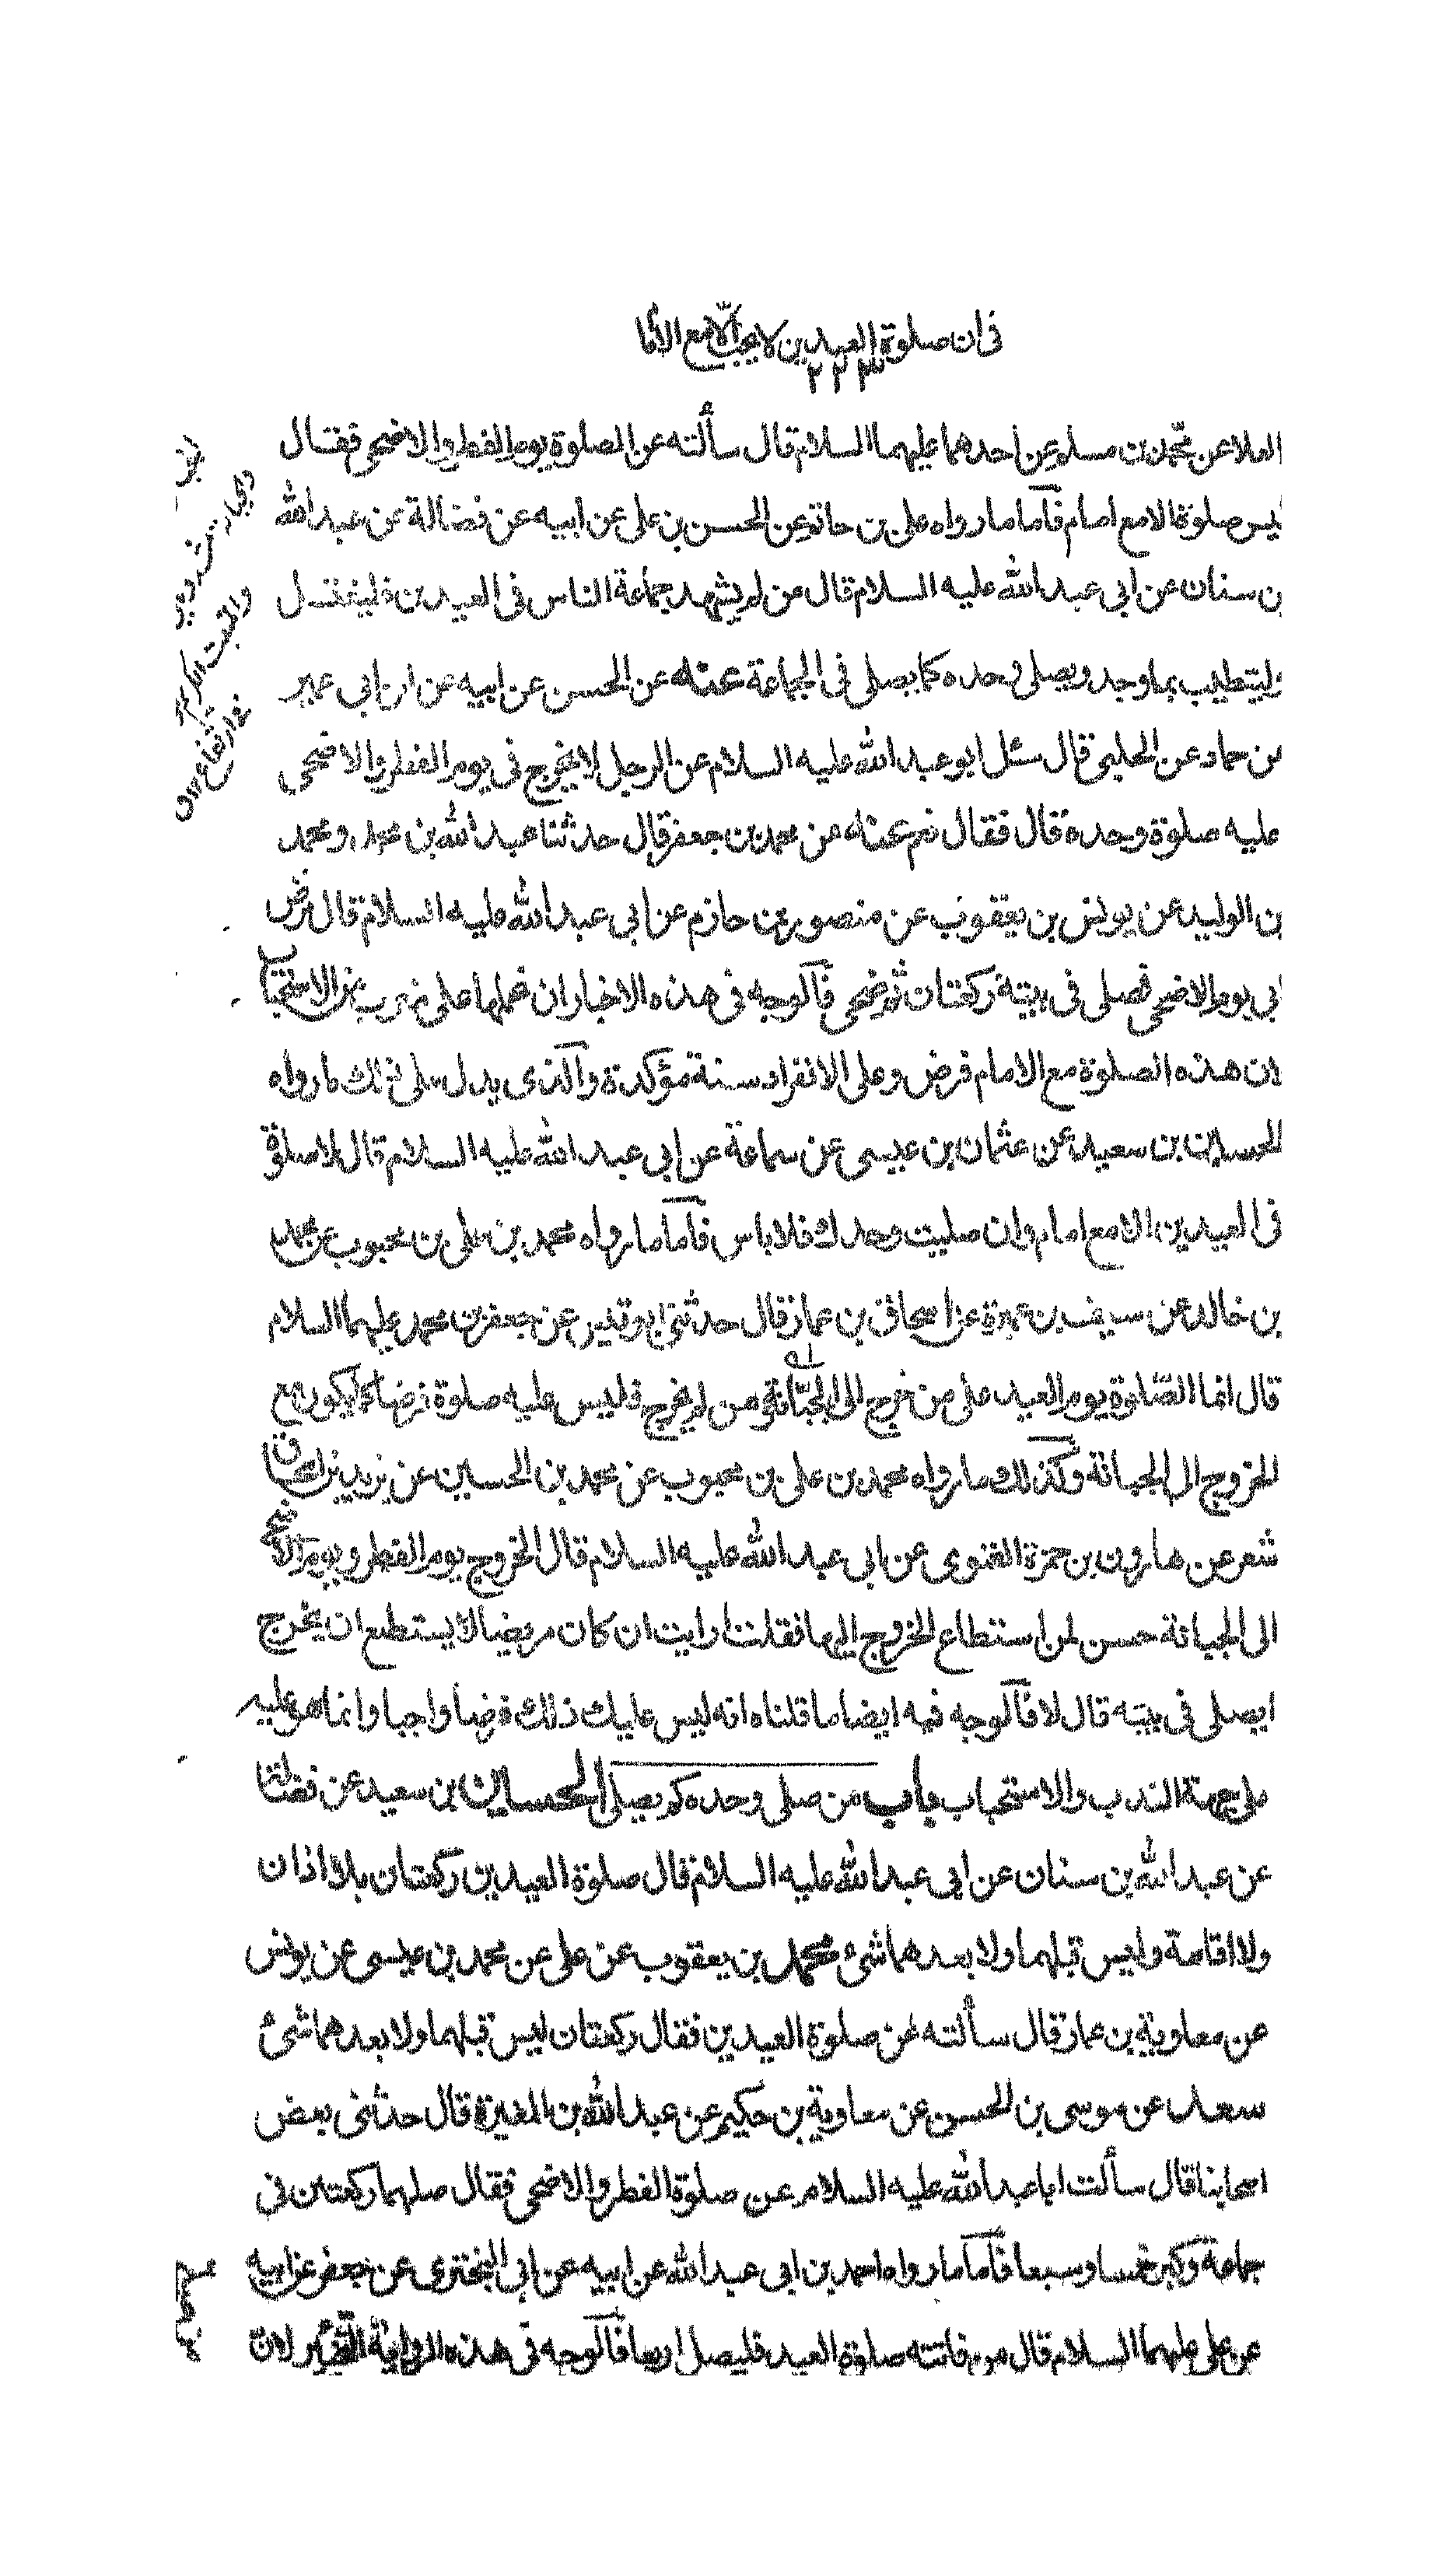 في ان صلوة العيدين لا يجب الا مع الاما
٢٢٣
العلا عن محمد بن مسلم عن احدهما عليهما السلام قال سألته عن الصلوة يوم الفطر والاضحى فقال
ليس صلوة الا مع امام فاما ما رواه على بن حاتم عن الحسن بن على عن ابيه عن فضالة عن عبد الله
بن سنان عن ابى عبد الله عليه السلام قال من لم يشهد جماعة الناس فى العيدين فليغتسل
وليتطيب بما وجد ويصلى وحده كما يصلى فى الجماعة عنه عن الحسن عن ابيه عن ابن ابى عمير
عن حماد عن الحلبى قال سئل ابو عبد الله عليه السلام عن الرجل لا يخرج فى يوم الفطر والاضحى
عليه صلوة وحده قال فقال نعم عنه عن محمد بن جعفر قال حدثنا عبد الله بن محمد ومحمد
بن الوليد عن يونس بن يعقوب عن منصور بن حازم عن ابى عبد الله عليه السلام قال مرض
ابى يوم الاضحى فصلى فى بيته ركعتان ثم ضحى فالوجه فى هذه الاخبار ان نحملها على ضرب من الاستحباب
لان هذه الصلوة مع الامام فرض وعلى الانفراد سنة مؤكدة والذى يدل على ذلك ما رواه
الحسين بن سعيد عن عثمان بن عيسى عن سماعة عن ابى عبد الله عليه السلام قال لا صلوة
فى العيدين الا مع امام وان صليت وحدك فلا باس فاما ما رواه محمد بن على بن محبوب عن محمد
بن خالد عن سيف بن عميرة عن اسحاق بن عمار قال حدثنى ابو قيس عن جعفر بن محمد عليهما السلام
قال انما الصلوة يوم العيد على من خرج الى الجبانة ومن لم يخرج فليس عليه صلوة فرضا كما يكون مع
الخروج الى الجبانة وكذلك ما رواه محمد بن على بن محبوب عن محمد بن الحسين عن يزيد بن اسحاق
شعر عن هارون بن حمزة الغنوى عن ابى عبد الله عليه السلام قال الخروج يوم الفطر ويوم الاضحى
الى الجبانة حسن لمن استطاع الخروج اليها فقلت ارايت ان كان مريضا لا يستطيع ان يخرج
ايصلى فى بيته قال لا فالوجه فيه ايضا ما قلناه انه ليس عليك ذلك فرضا واجبا وانما هو عليه
على جهة الندب والاستحباب باب من صلى وحده كم يصلى الحسين بن سعيد عن فضالة
عن عبد الله بن سنان عن ابى عبد الله عليه السلام قال صلوة العيدين ركعتان بلا اذان
ولا اقامة وليس قبلهما ولا بعدهما شىء محمد بن يعقوب عن على عن محمد بن عيسى عن يونس
عن معاوية بن عمار قال سألته عن صلوة العيدين فقال ركعتان ليس قبلهما ولا بعدهما شىء
سعد عن موسى بن الحسن عن معاوية بن حكيم عن عبد الله بن المغيرة قال حدثنى بعض
اصحابنا قال سألت ابا عبد الله عليه السلام عن صلوة الفطر والاضحى فقال صلهما ركعتين فى
جماعة وكبر خمسا وسبعا فاما ما رواه احمد بن ابى عبد الله عن ابيه عن ابى البخترى عن جعفر عن ابيه
عن على عليهما السلام قال من فاتته صلوة العيد فليصل اربعا فالوجه فى هذه الرواية التخيير لان